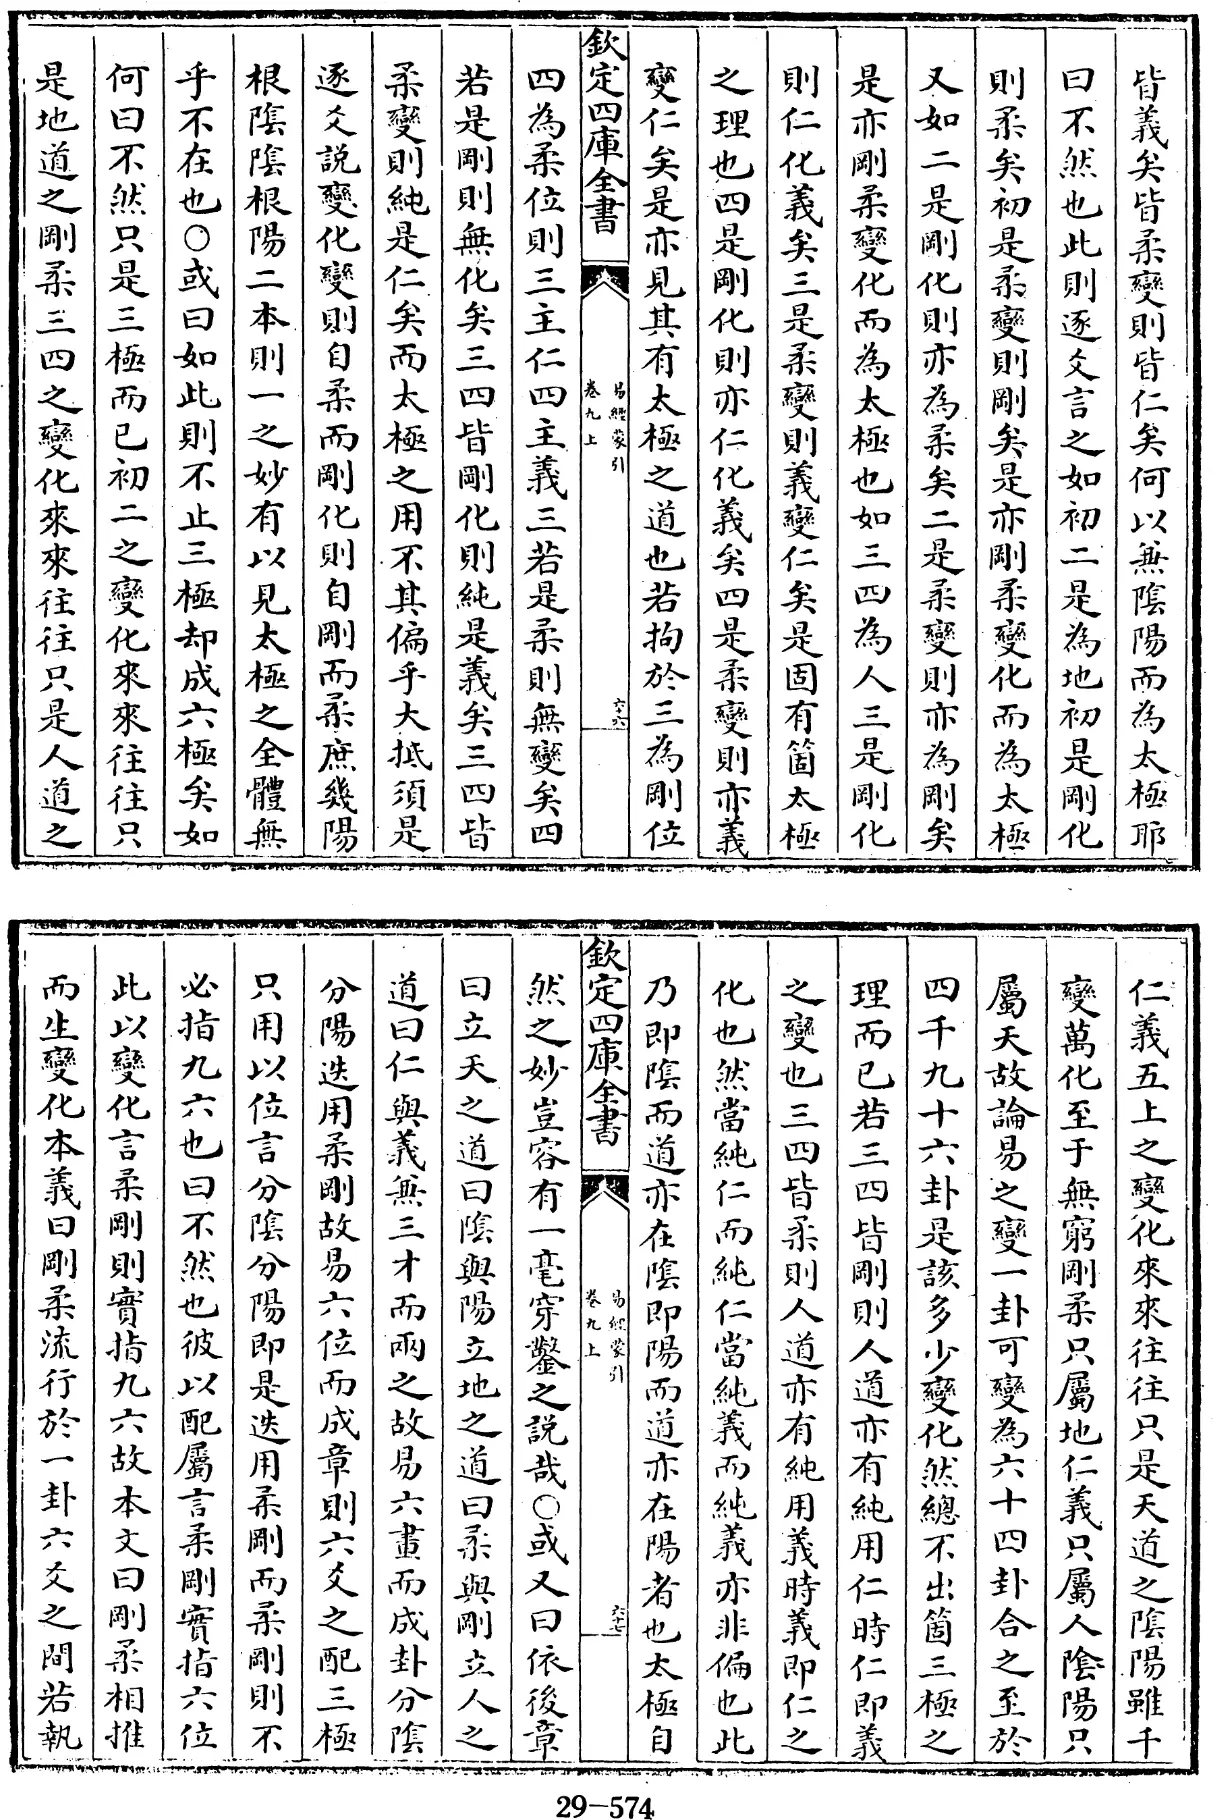 皆義矣皆柔變則皆仁矣何以無陰陽而為太極耶
曰不然也此則逐爻言之如初二是為地初是剛化
則柔矣初是柔變則剛矣是亦剛柔變化而為太極
又如二是剛化則亦為柔矣二是柔變則亦為剛矣
是亦剛柔變化而為太極也如三四為人三是剛化
則仁化義矣三是柔變則義變仁矣是固有箇太極
之理也四是剛化則亦仁化義矣四是柔變則亦義
變仁矣是亦見其有太極之道也若拘於三為剛位
欽定四庫全書
易經蒙引
卷九上
六十六
四為柔位則三主仁四主義三若是柔則無變矣四
若是剛則無化矣三四皆剛化則純是義矣三四皆
柔變則純是仁矣而太極之用不其偏乎大抵須是
逐爻說變化變則自柔而剛化則自剛而柔庶幾陽
根陰陰根陽二本則一之妙有以見太極之全體無
乎不在也○或曰如此則不止三極却成六極矣如
何曰不然只是三極而已初二之變化來來往往只
是地道之剛柔三四之變化來來往往只是人道之
仁義五上之變化來來往往只是天道之陰陽雖千
變萬化至于無窮剛柔只屬地仁義只屬人陰陽只
屬天故論易之變一卦可變為六十四卦合之至於
四千九十六卦是該多少變化然總不出箇三極之
理而已若三四皆剛則人道亦有純用仁時仁即義
之變也三四皆柔則人道亦有純用義時義即仁之
化也然當純仁而純仁當純義而純義亦非偏也此
乃即陰而道亦在陰即陽而道亦在陽者也太極自
欽定四庫全書
易經蒙引
卷九上
六十七
然之妙豈容有一毫穿鑿之說哉○或又曰依後章
曰立天之道曰陰與陽立地之道曰柔與剛立人之
道曰仁與義無三才而兩之故易六畫而成卦分陰
分陽迭用柔剛故易六位而成章則六爻之配三極
只用以位言分陰分陽即是迭用柔剛而柔剛則不
必指九六也曰不然也彼以配屬言柔剛實指六位
此以變化言柔剛則實指九六故本文曰剛柔相推
而生變化本義曰剛柔流行於一卦六爻之間若執
29-574